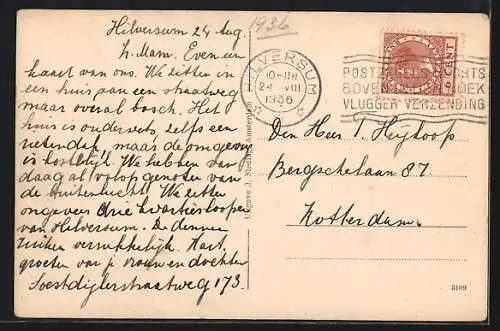 Hilversum 24 Aug.
1936
h. Mam. Even een
kaart van ons. We zitten in
een huis, aan een straatweg
maar overal bosch. Het
huis is ouderwets, zelfs een
rieten dak, maar de omgeving
is kostelijk. We hebben van
daag al volop genoten van
de buitenlucht. We zitten
ongeveer drie kwartier loopen
van Hilversum. De dennen
ruiken verrukkelijk. Hart.
groeten van je vrouw en dochter
Soestdijkerstraatweg 173.
HILVERSUM
24 VIII
1936
POSTZEGELS RECHTS
BOVEN
VLUGGER VERZENDING
CENT
Den Heer J. Heykoop
Bergschelaan 87
Rotterdam.
Uitgave J. Amsterdam
3109